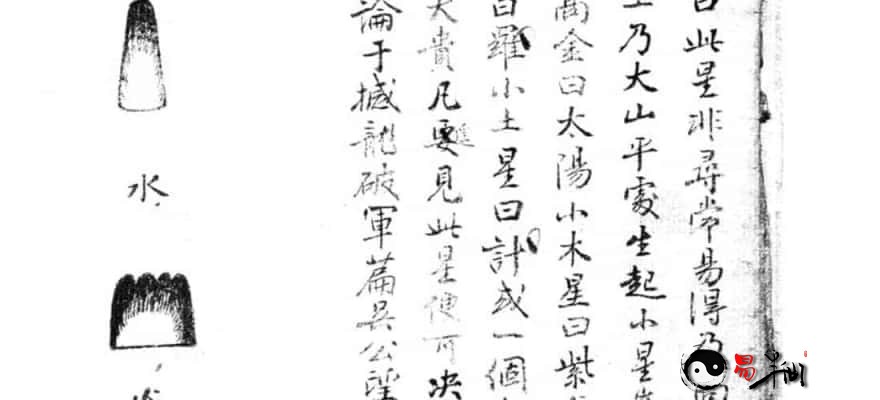 曰此星非尋常易得乃
乃大山平處生起小星
高金曰太陽小木星曰紫
曰羅小土星曰計或一個
大貴凡要見此星便可决
進
論于撼龍破軍篇吳公
水
易